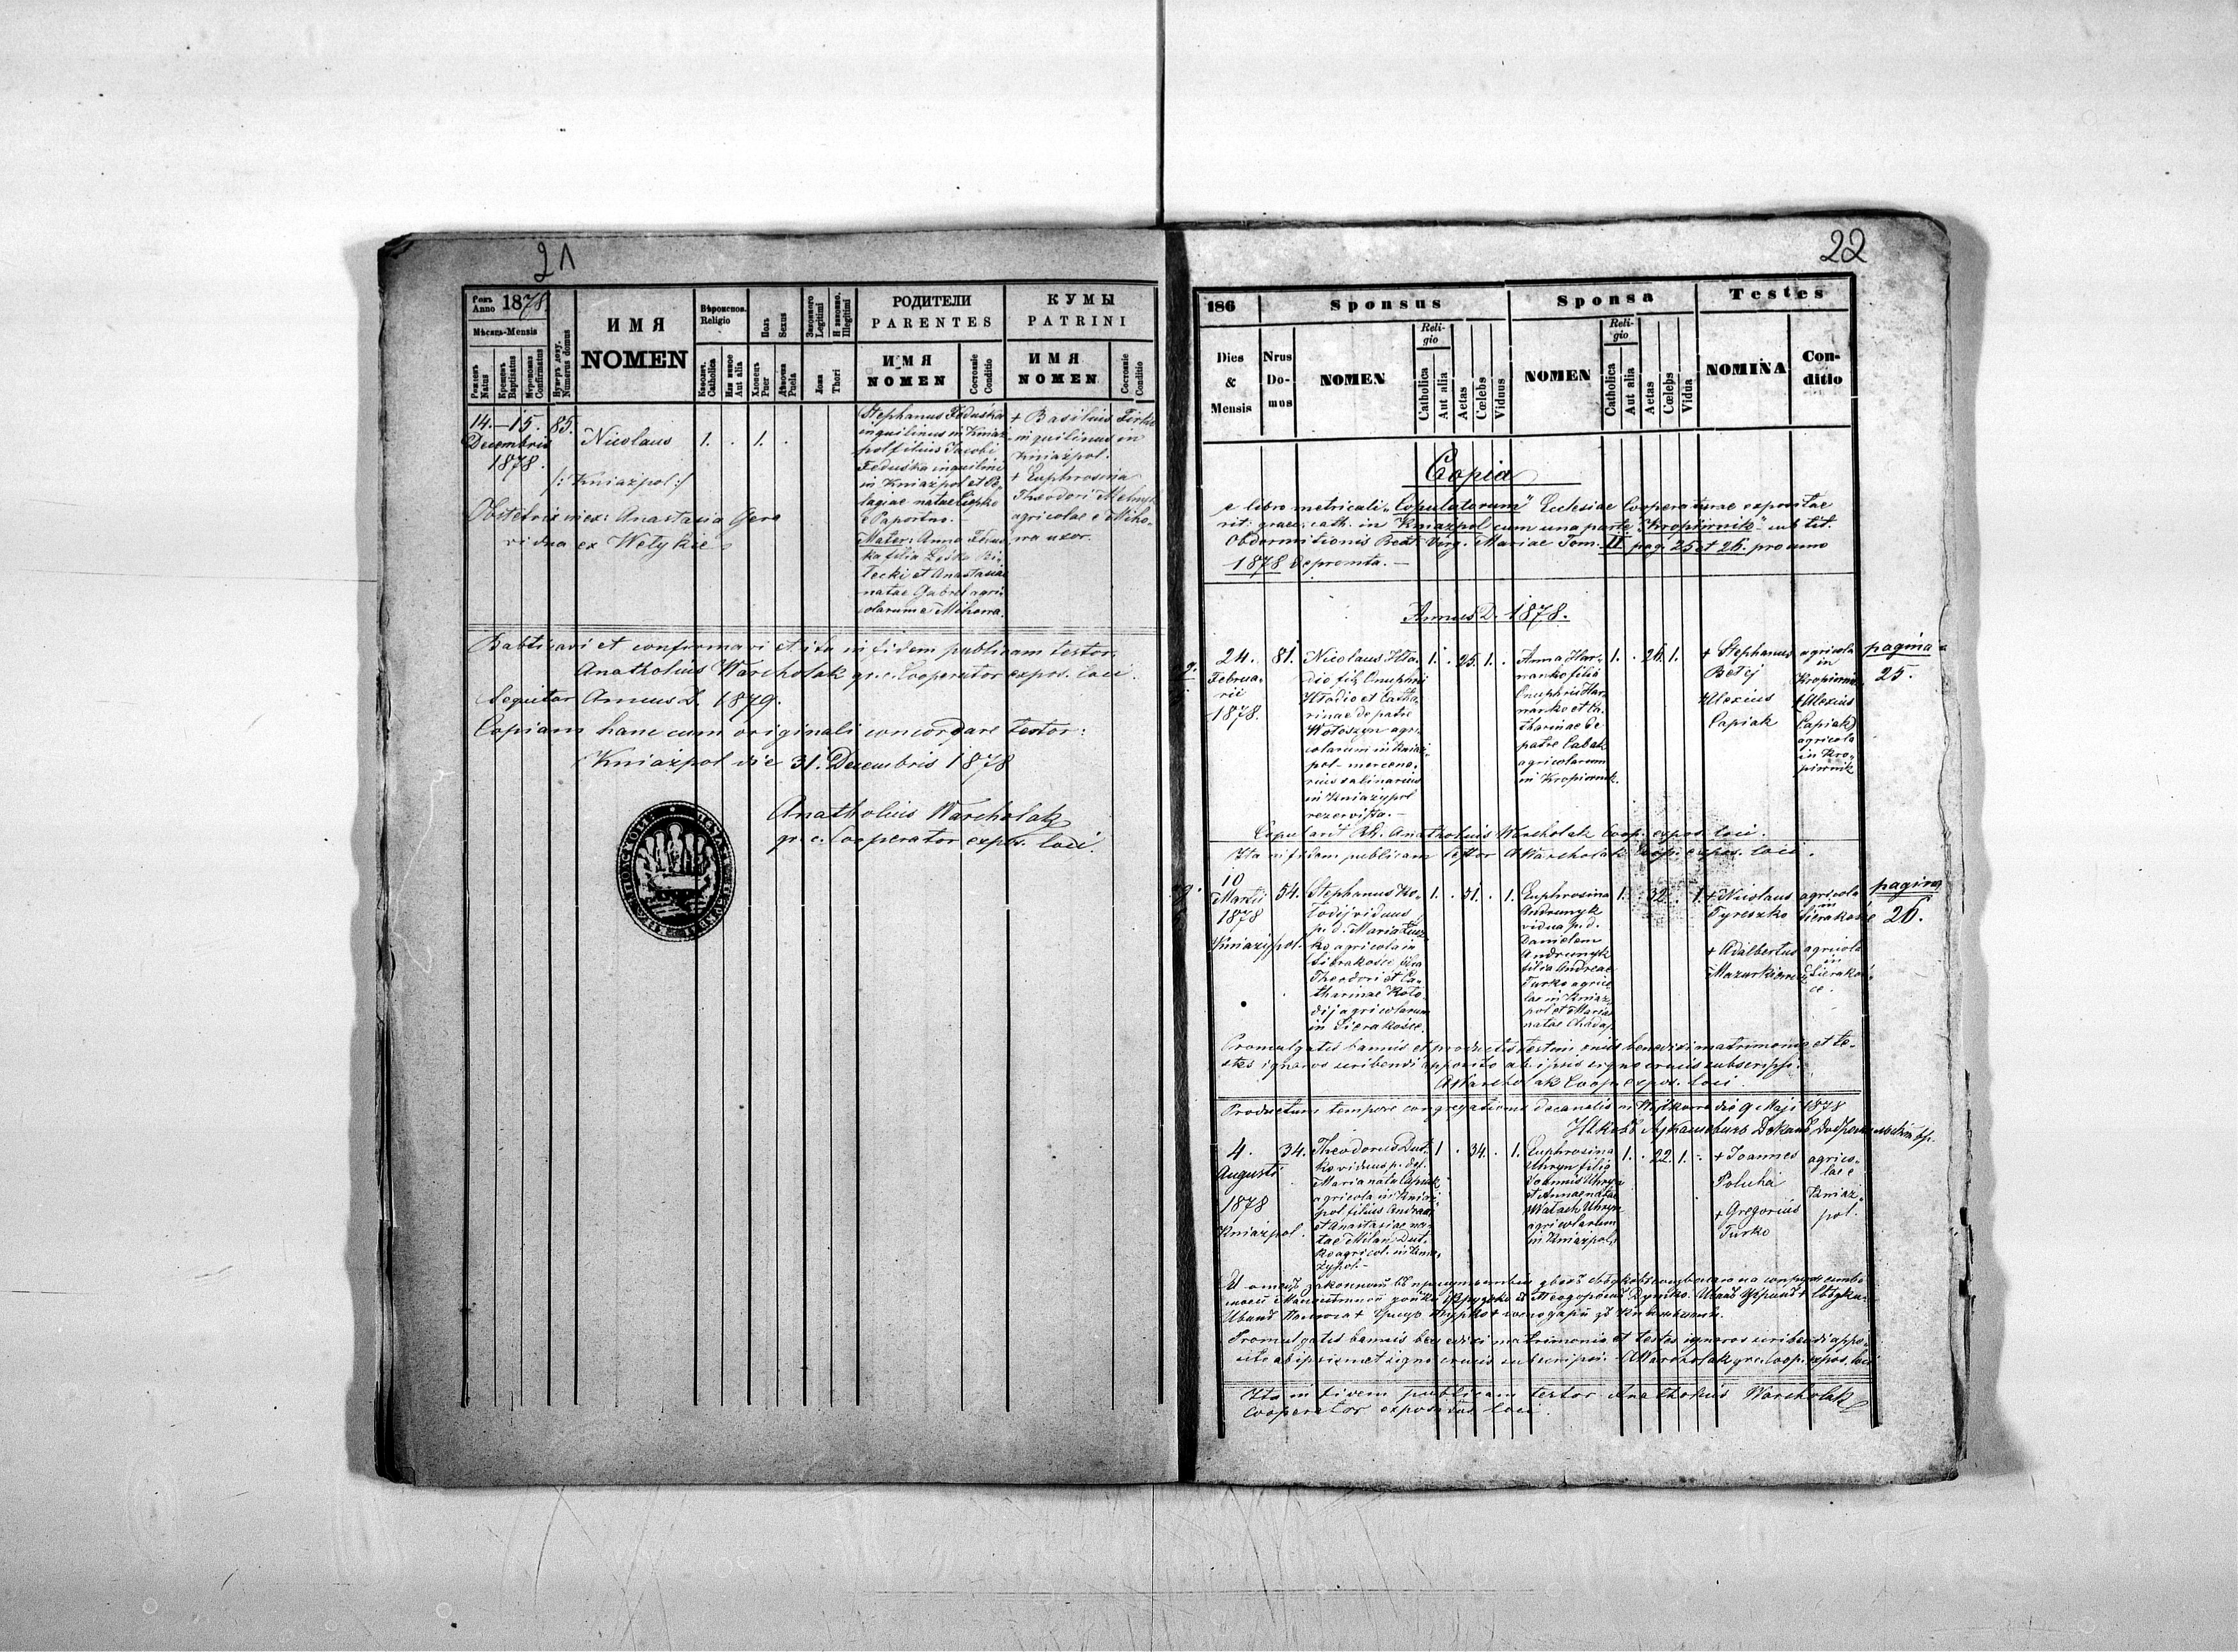 21
Рокъ Anno 1878.
Мѣсяць-Mensis
Natus
Baptisatus
Confirmatus
Numerus domus
ИМЯ
NOMEN
Вѣроиспов.
Religio
Catholica
Aut alia
Полъ Sexus
Хлопецъ Puer
Дѣвочка Puela
Законного Legitimi
Illegitimi
Ложа Thori
РОДИТЕЛИ
PARENTES
ИМЯ
NOMEN
Состоянiе Conditio
КУМЫ
PATRINI
ИМЯ
NOMEN
Состоянiе Conditio
14.–15.
Decembris
1878.
85.
Nicolaus
/: Kniazpol :/
1. . 1. .
Obstetrix Anastasia Gera
vidua ex Wełykie
Stephanus Feduska
inquilinus in Kniaz
pol filius Jacobi
Feduska inquilini
in Kniazpol et Pe-
lagiae natae
e Paportno.
Mater: Anna
ka filia Bi-
lecki et Anastasiae
natae Gabrel agri-
colarum e Mihowa.
+ Basilius Firko
inquilinus in
Kniazpol.
+ Euphrosina
Theodori Melnyk
agricolae e Miho-
wa uxor.
Babtisavi et confirmavi et ita in fidem publicam testor:
Anatholius Warcholak gr. c. Cooperator expos. loci.
Sequitur Annus D. 1879.
Copiam hanc cum originali concordare testor:
Kniazpol die 31. Decembris 1878
Anatholius Warcholak
gr. c. Cooperator expos. loci.
22
186
Dies
&
Mensis
Nrus
Do-
mus
Sponsus
NOMEN
Reli-
gio
Catholica
Aut alia
Aetas
Cœlebs
Viduus
Sponsa
NOMEN
Reli-
gio
Catholica
Aut alia
Aetas
Cœlebs
Vidua
Testes
NOMINA
Con-
ditio
Copia
e libro metricali „Copulatorum" Ecclesiae Cooperaturae expositae
rit: graec. cath. in Kniazpol cum una parte „Kropiwnik" sub tit.
Obdormitionis Beat. Virg. Mariae Tom. II pag. 25 et 26. pro anno
1878 depromta. –
Annus D. 1878.
24.
Februa-
rii
1878.
81.
Nicolaus Hła-
dio fil. Onuphrii
Hładio et Catha-
rinae de patre
Wołoszyn agri-
colarum in Kniaz-
pol – mercena-
rius salinarius
in Kniazypol
rezervista. –
1. . 25. 1. .
Anna Har-
nanko filia
Onuphrii Har-
nanko et Ca-
tharinae de
patre Cabak
agricolarum
in Kropiwnik.
1. . 26. 1.
+ Stephanus
Betej
+ Alexius
Capiak
agricola
in
Kropiwnik
+ Alexius
Capiak
agricola
in Kro-
piwnik
pagina
25.
Copulavit Rh. Anatholius Warcholak Coop. expos. loci.
Ita in fidem publicam testor AWarcholak Coop. expos. loci.
10
Martii
1878
Kniazypol.
54.
Stephanus Ko-
łodij viduus
p. d. Maria
ko agricola in
Sierakośce filius
Theodori et Ca-
tharinae Koło-
dij agricolarum
in Sierakośce.
1. . 51. . 1.
Euphrosina
Andrunyk
vidua p. d.
Danielem
Andrunyk
filia Andreae
Turko agrico-
lae in Kniaz-
pol et Maria
natae Chudaj.
1. . 32. . 1.
+ Nicolaus
Tyreszko
+ Adalbertus
Mazurkiewicz
agricola
in
Sierakośce
agricola
in
Sierakoś-
ce.
pagina
26.
Promulgatis bannis et productis benedixi matrimonio et te-
stes ignaros scribendi apposito ab ipsis signo crucis subscripsi.
AWarcholak Coop. expos. loci.
Productum tempore congregationis decanalis in Wojtkowa die 9 Maji 1878
4.
Augusti
1878
Kniazpol.
34.
Theodorus Dut-
ko viduus p. def.
Maria nata Capiak
agricola in Kniaz-
pol filius Andreae
et Anastasiae na-
tae Milan Dut-
ko agricol. in Knia-
żypol. –
1 . 34. . 1.
Euphrosina
Uhryn filia
Joannis Uhryn
et Annae natae
Wałach Uhryn
agricolarum
in Kniazpol.
1. . 22. 1. .
+ Joannes
Połuha
+ Gregorius
Turko
agrico-
lae e
Kniaz-
pol.
Promulgatis bannis benedixi matrimonio et testes ignaros scribendi appo-
sito ab ipsismet signo crucis subscripsi. AWarcholak gr. c. Coop. expos. loci
Ita in fidem publicam testor Anatholius Warcholak
Cooperator expositus loci.